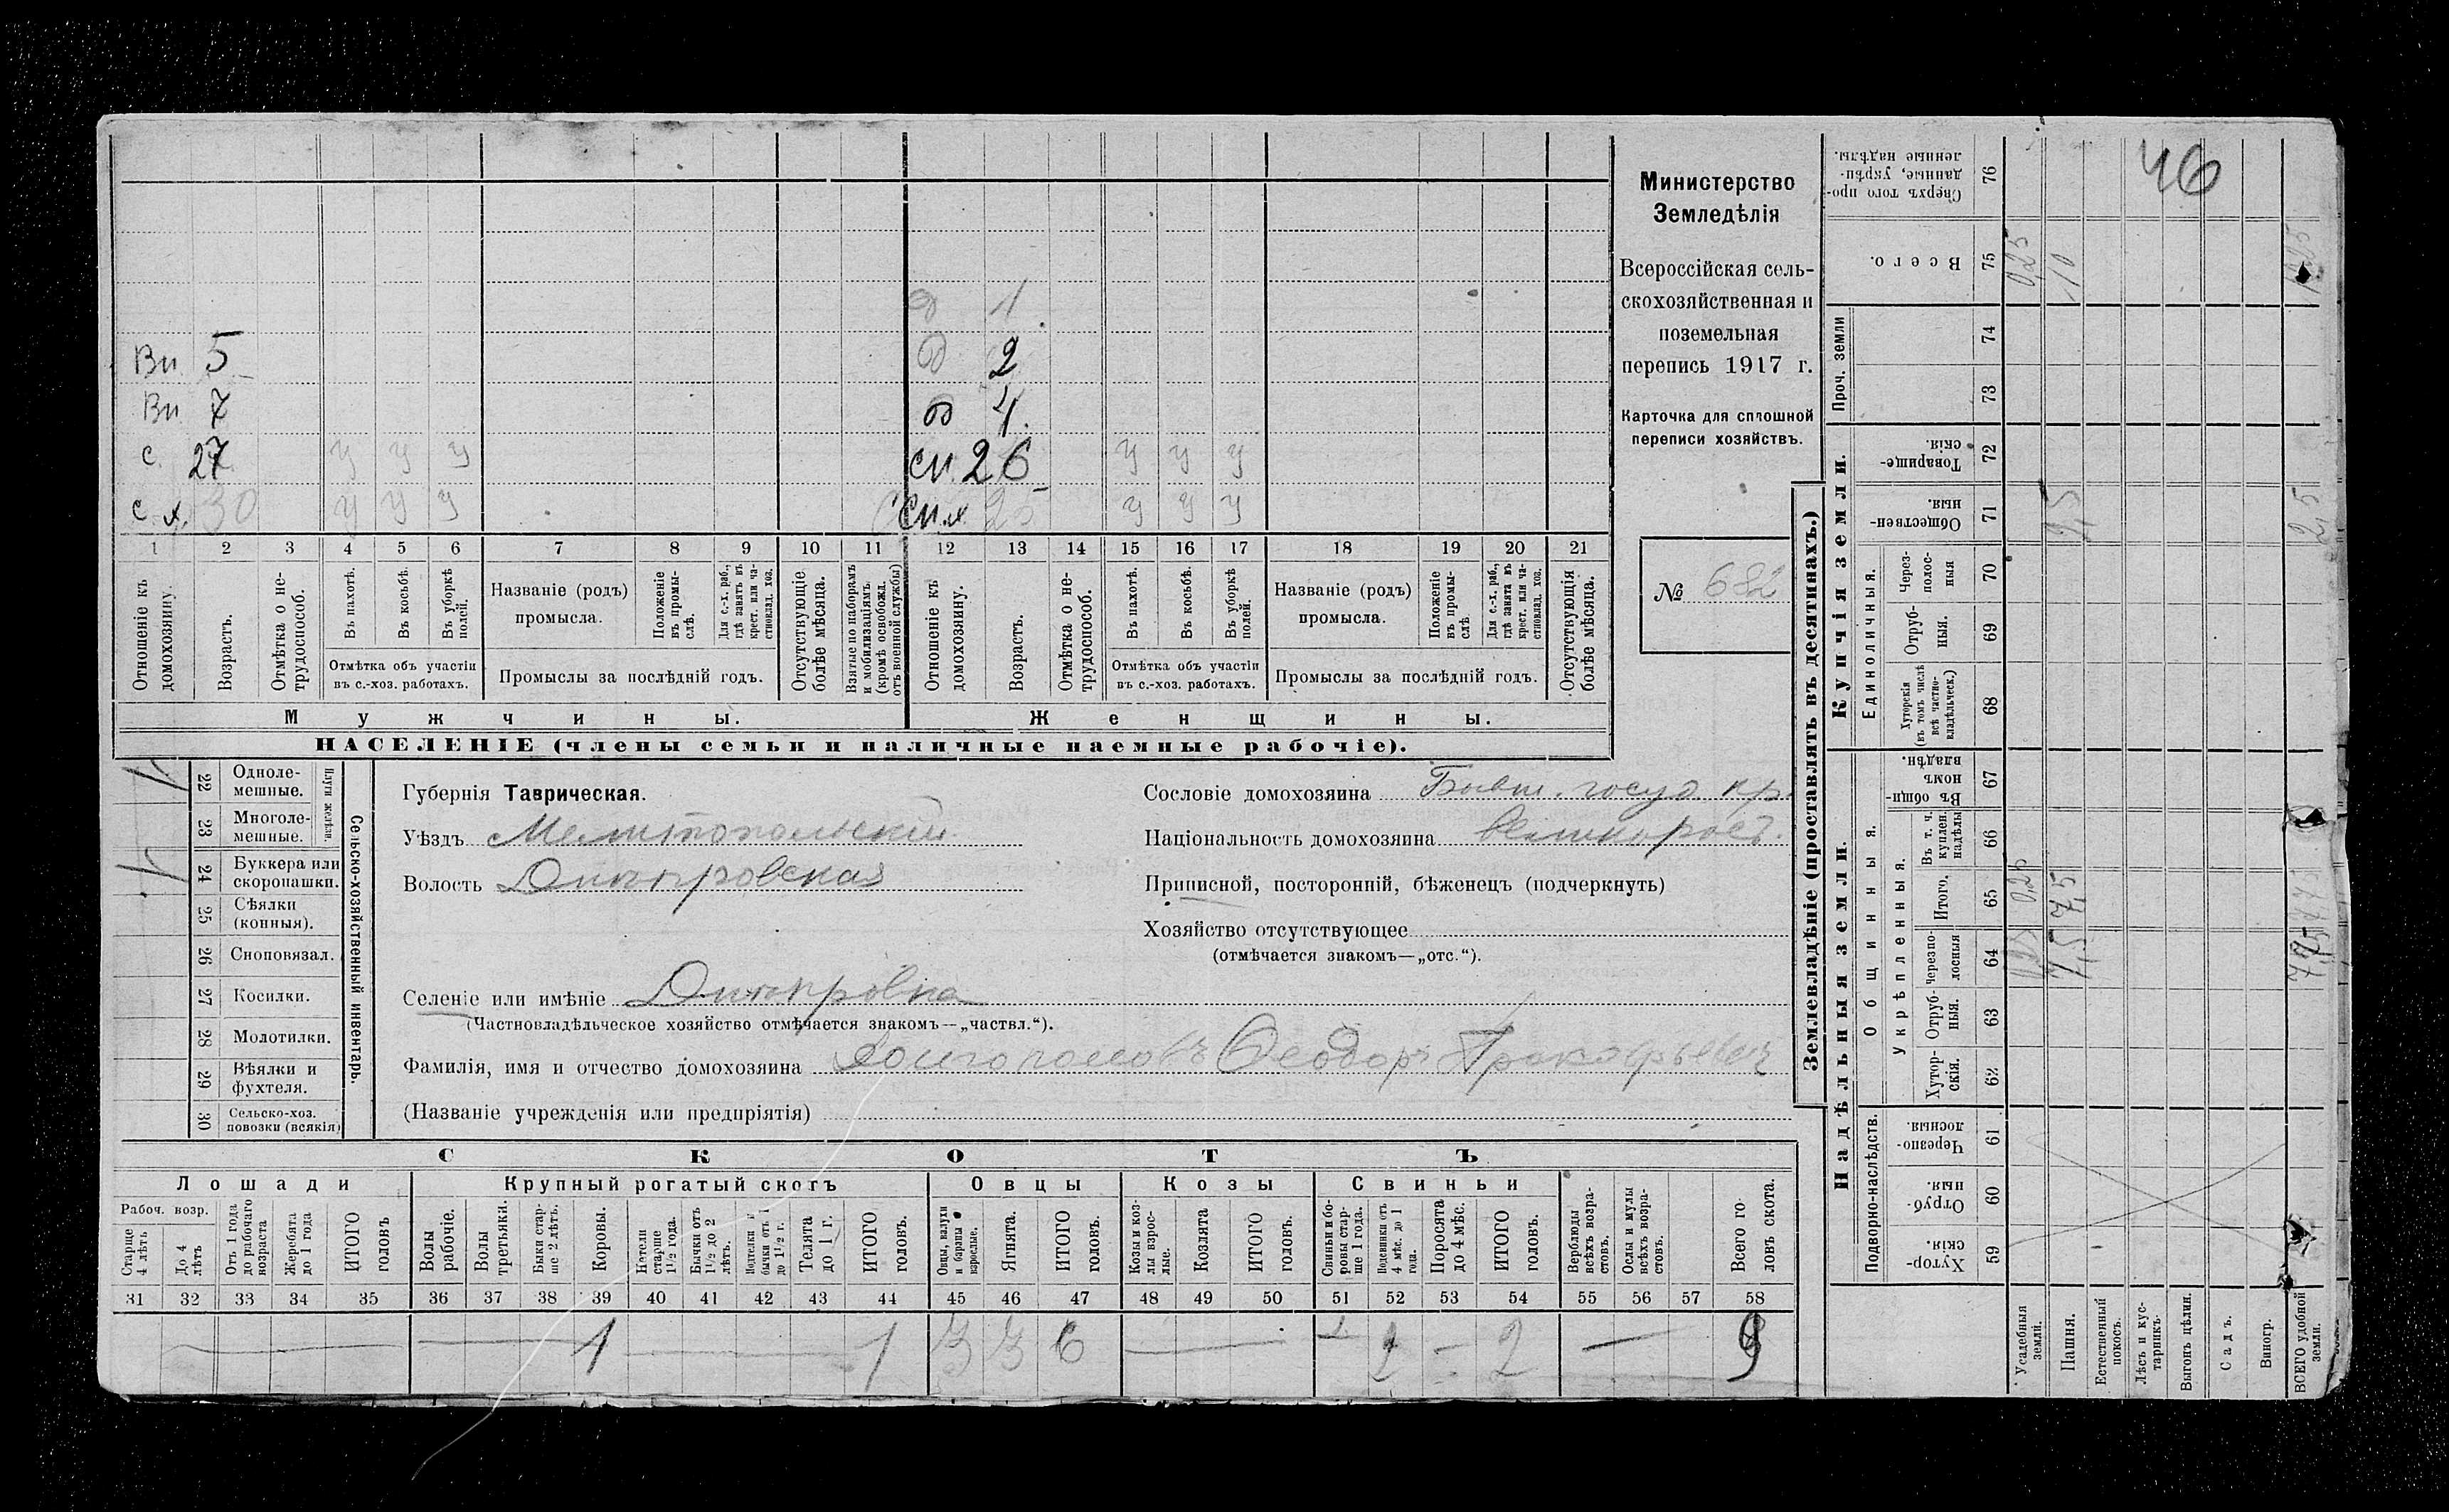 Вн 5
Вн 7
с. 27 у у у
с. х. 30 у у у
д 1
д 2
д 4.
сн. 26 у у у
сн. х. 25 у у у
1 2 3 4 5 6 7 8 9 10 11 12 13 14 15 16 17 18 19 20 21
Отношеніе къ домохозяину.
Возрастъ.
Отмѣтка о не-трудоспособ.
Въ пахотѣ.
Въ косьбѣ.
Въ уборкѣ полей.
Отмѣтка объ участіи
въ с.-хоз. работахъ.
Названіе (родъ)
промысла.
Положеніе въ промы-слѣ.
Для с.-х. раб., гдѣ занятъ въ крест. или ча-стновлад. хоз.
Промыслы за послѣдній годъ.
Отсутствующіе болѣе мѣсяца.
Взятые по наборамъ и мобилизаціямъ (кромѣ освобожд. отъ военной службы)
Отношеніе къ домохозяину.
Возрастъ.
Отмѣтка о не-трудоспособ.
Въ пахотѣ.
Въ косьбѣ.
Въ уборкѣ полей.
Отмѣтка объ участіи
въ с.-хоз. работахъ.
Названіе (родъ)
промысла.
Положеніе въ промы-слѣ.
Для с.-х. раб., гдѣ занята въ крест. или ча-стновлад. хоз.
Промыслы за послѣдній годъ.
Отсутствующія болѣе мѣсяца.
Мужчины. Женщины.
НАСЕЛЕНІЕ (члены семьи и наличные наемные рабочіе).
Министерство
Земледѣлія
Всероссійская сель-
скохозяйственная и
поземельная
перепись 1917 г.
Карточка для сплошной
переписи хозяйствъ.
№ 682
22 Одноле-мешные. 1
23 Многоле-мешные.
Плуги желѣзн.
24 Буккера или скоропашки. 1
25 Сѣялки (конныя).
26 Сноповязал.
27 Косилки.
28 Молотилки.
29 Вѣялки и фухтеля.
30 Сельско-хоз. повозки (всякія)
Сельско-хозяйственный инвентарь.
Губернія Таврическая.
Уѣздъ Мелитопольскій
Волость Днѣпровская
Селеніе или имѣніе Днѣпровка
(Частновладѣльческое хозяйство отмѣчается знакомъ—„частвл.“).
Фамилія, имя и отчество домохозяина Долгополовъ Ѳеодоръ Прокофьевич
(Названіе учрежденія или предпріятія)
Сословіе домохозяина Бывш. госуд. кр.
Національность домохозяина великоросъ.
Приписной, посторонній, бѣженецъ (подчеркнуть)
Хозяйство отсутствующее
(отмѣчается знакомъ—„отс.“).
СКОТЪ
Лошади Крупный рогатый скотъ Овцы Козы Свиньи
Рабоч. возр.
Старше 4 лѣтъ
До 4 лѣтъ
Отъ 1 года до рабочаго возраста
Жеребята до 1 года
ИТОГО головъ
Волы рабочіе.
Волы третьяки.
Быки стар-ше 2 лѣтъ.
Коровы.
Нетели старше 1½ года.
Бычки отъ 1½ до 2 лѣтъ.
Подтелки и бычки отъ 1 до 1½ г.
Телята до 1 г.
ИТОГО головъ.
Овцы, валухи и бараны взрослые.
Ягнята.
ИТОГО головъ.
Козы и коз-лы взрос-лые.
Козлята
ИТОГО головъ.
Свиньи и бо-ровы стар-ше 1 года.
Подсвинки отъ 4 мѣс. до 1 года.
Поросята до 4 мѣс.
ИТОГО головъ.
Верблюды всѣхъ возра-стовъ.
Ослы и мулы всѣхъ возра-стовъ.
Всего го-ловъ скота.
31 32 33 34 35 36 37 38 39 40 41 42 43 44 45 46 47 48 49 50 51 52 53 54 55 56 57 58
1 1 3 3 6 2 9
Землевладѣніе (проставлять въ десятинахъ.)
46
76 Сверхъ того про-данные, укрѣп-ленные надѣлы.
75 Всего. 0,25 10
Проч. земли
74
73
Купчія земли.
72 Товарище-скія.
71 Обществен-ныя. 2,5 2,5
Единоличныя.
70 Через-полос-ныя
69 Отруб-ныя.
68 Хуторскія (въ томъ числѣ всѣ частно-владѣльческ.)
Надѣльныя земли.
Общинныя.
67 Въ общин-номъ владѣн.
Укрѣпленныя.
66 Въ т. ч. куплен. надѣлы
65 Итого. 0,25 7,5
64 Черезпо-лосныя 0,25 7,5 7,75
63 Отруб-ныя.
62 Хутор-скія.
Подворно-наслѣдств.
61 Черезпо-лосныя.
60 Отруб-ныя.
59 Хутор-скія.
Усадебныя земли.
Пашня.
Естественный покосъ.
Лѣсъ и кус-тарникъ.
Выгонъ цѣлин.
Садъ.
Виногр.
ВСЕГО удобной земли.